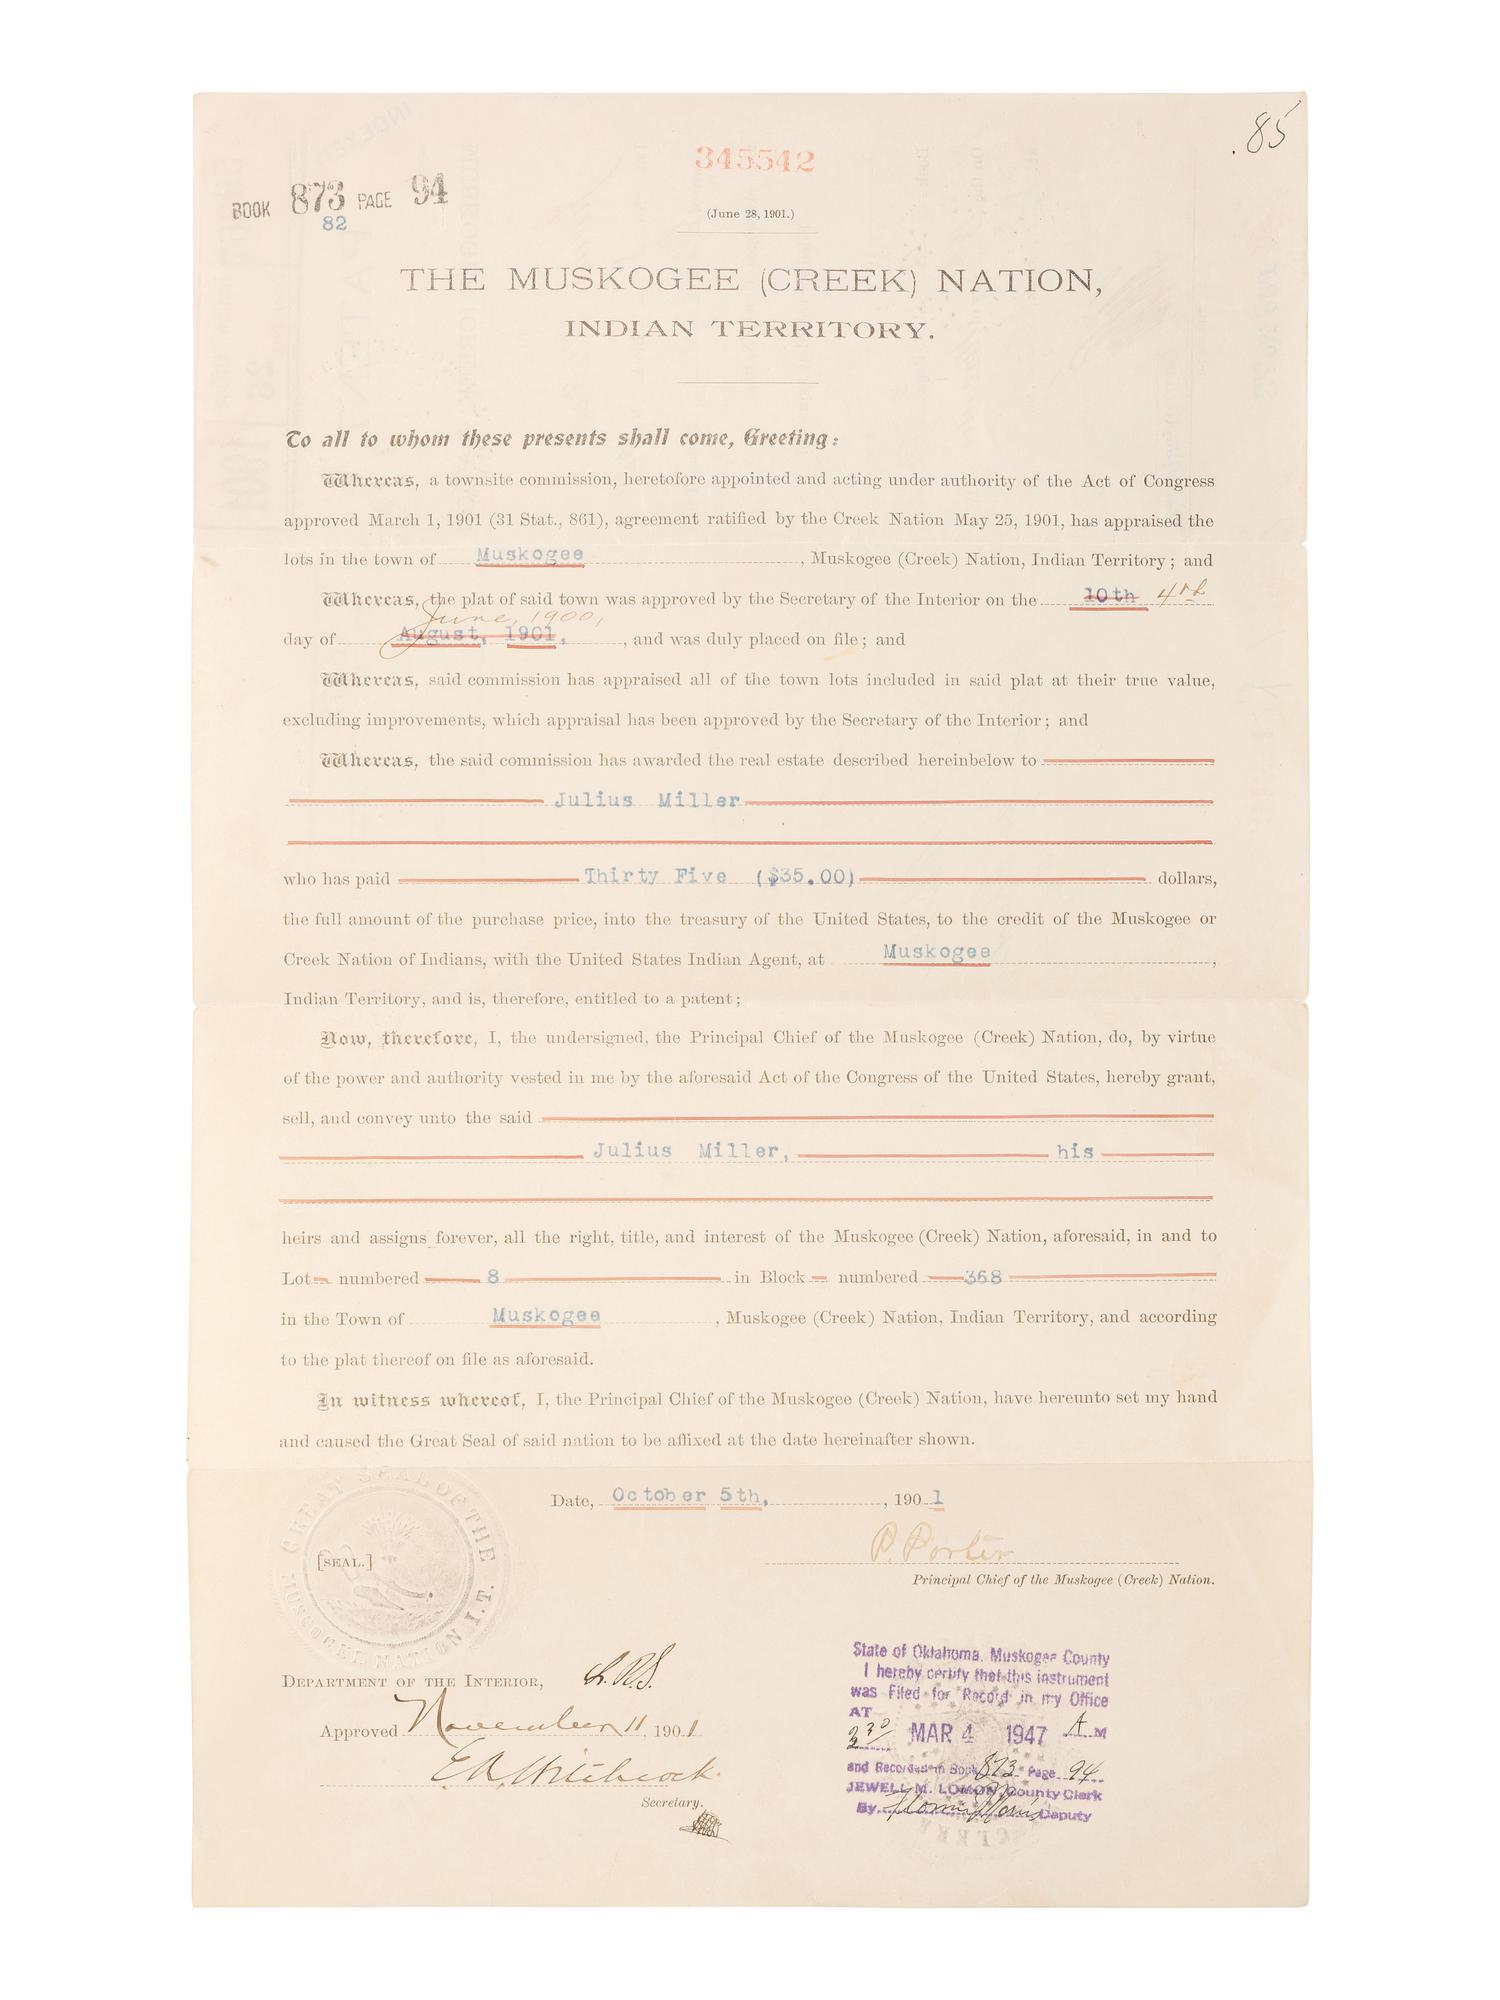 .85
345542
BOOK 873 PAGE 94
82
(June 28, 1901.)
THE MUSKOGEE (CREEK) NATION,
INDIAN TERRITORY.
To all to whom these presents shall come, Greeting:
Whereas, a townsite commission, heretofore appointed and acting under authority of the Act of Congress
approved March 1, 1901 (31 Stat., 861), agreement ratified by the Creek Nation May 25, 1901, has appraised the
lots in the town of Muskogee, Muskogee (Creek) Nation, Indian Territory; and
Whereas, the plat of said town was approved by the Secretary of the Interior on the 10th 4th
June, 1900,
day of August, 1901, , and was duly placed on file; and
Whereas, said commission has appraised all of the town lots included in said plat at their true value,
excluding improvements, which appraisal has been approved by the Secretary of the Interior; and
Whereas, the said commission has awarded the real estate described hereinbelow to
Julius Miller
who has paid Thirty Five ($35.00) dollars,
the full amount of the purchase price, into the treasury of the United States, to the credit of the Muskogee or
Creek Nation of Indians, with the United States Indian Agent, at Muskogee,
Indian Territory, and is, therefore, entitled to a patent;
Now, therefore, I, the undersigned, the Principal Chief of the Muskogee (Creek) Nation, do, by virtue
of the power and authority vested in me by the aforesaid Act of the Congress of the United States, hereby grant,
sell, and convey unto the said
Julius Miller, his
heirs and assigns forever, all the right, title, and interest of the Muskogee (Creek) Nation, aforesaid, in and to
Lot numbered 8 in Block numbered 368
in the Town of Muskogee, Muskogee (Creek) Nation, Indian Territory, and according
to the plat thereof on file as aforesaid.
In witness whereof, I, the Principal Chief of the Muskogee (Creek) Nation, have hereunto set my hand
and caused the Great Seal of said nation to be affixed at the date hereinafter shown.
Date, October 5th, , 1901
GREAT SEAL OF THE MUSCOGEE NATION I.T.
[SEAL.]
P. Porter
Principal Chief of the Muskogee (Creek) Nation.
DEPARTMENT OF THE INTERIOR,
Approved November 11, 1901
E A Hitchcock.
Secretary.
State of Oklahoma, Muskogee County
I hereby certify that this instrument
was Filed for Record in my Office
AT
2 30 MAR 4 1947 A M
and Recorded in Book 873 Page 94
JEWELL M. LOMON, County Clerk
By Deputy